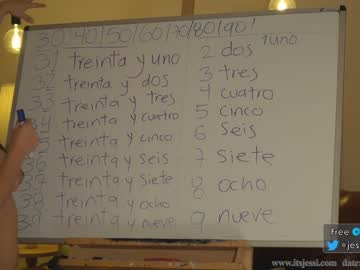 30/40/50/60/70/80/90/
1 uno
31 treinta y uno 2 dos
32 treinta y dos 3 tres
33 treinta y tres 4 cuatro
34 treinta y cuatro 5 cinco
35 treinta y cinco 6 seis
36 treinta y seis 7 siete
37 treinta y siete 8 ocho
38 treinta y ocho 9 nueve
39 treinta y nueve
Free
@jes
www.itsjessi.com date: